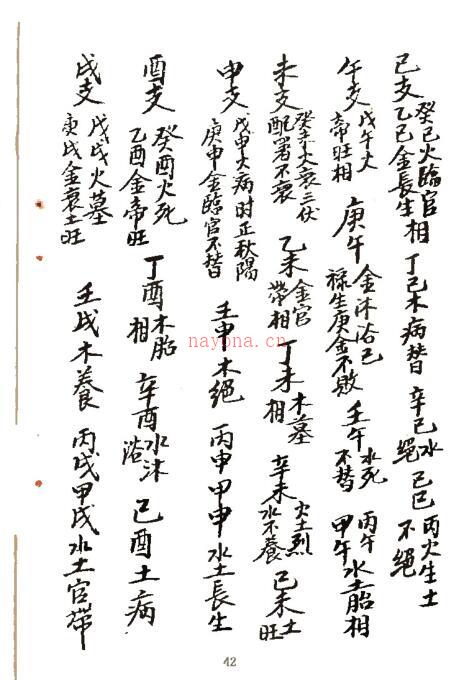 巳支 癸巳火臨官 乙巳金長生相 丁己木病替 辛巳水絕 己巳丙火生土不絕
午支 戊午火帝旺相 庚午金沐浴己祿生庚金不敗 壬午水死不替 丙午甲午水土胎相
未支 癸未火衰三伏配署不衰 乙未金官帶相 丁未木墓相 辛未火土烈水不養 己未土旺
申支 戊申火病时正秋陽庚申金臨官不替 壬申木絕 丙申甲申水土長生
酉支 癸酉火死乙酉金帝旺 丁酉木胎相 辛酉水沐浴 己酉土病
戌支 戊戌火墓庚戌金衰土旺 壬戌木養 丙戌甲戌水土官带
nayona.cn
42